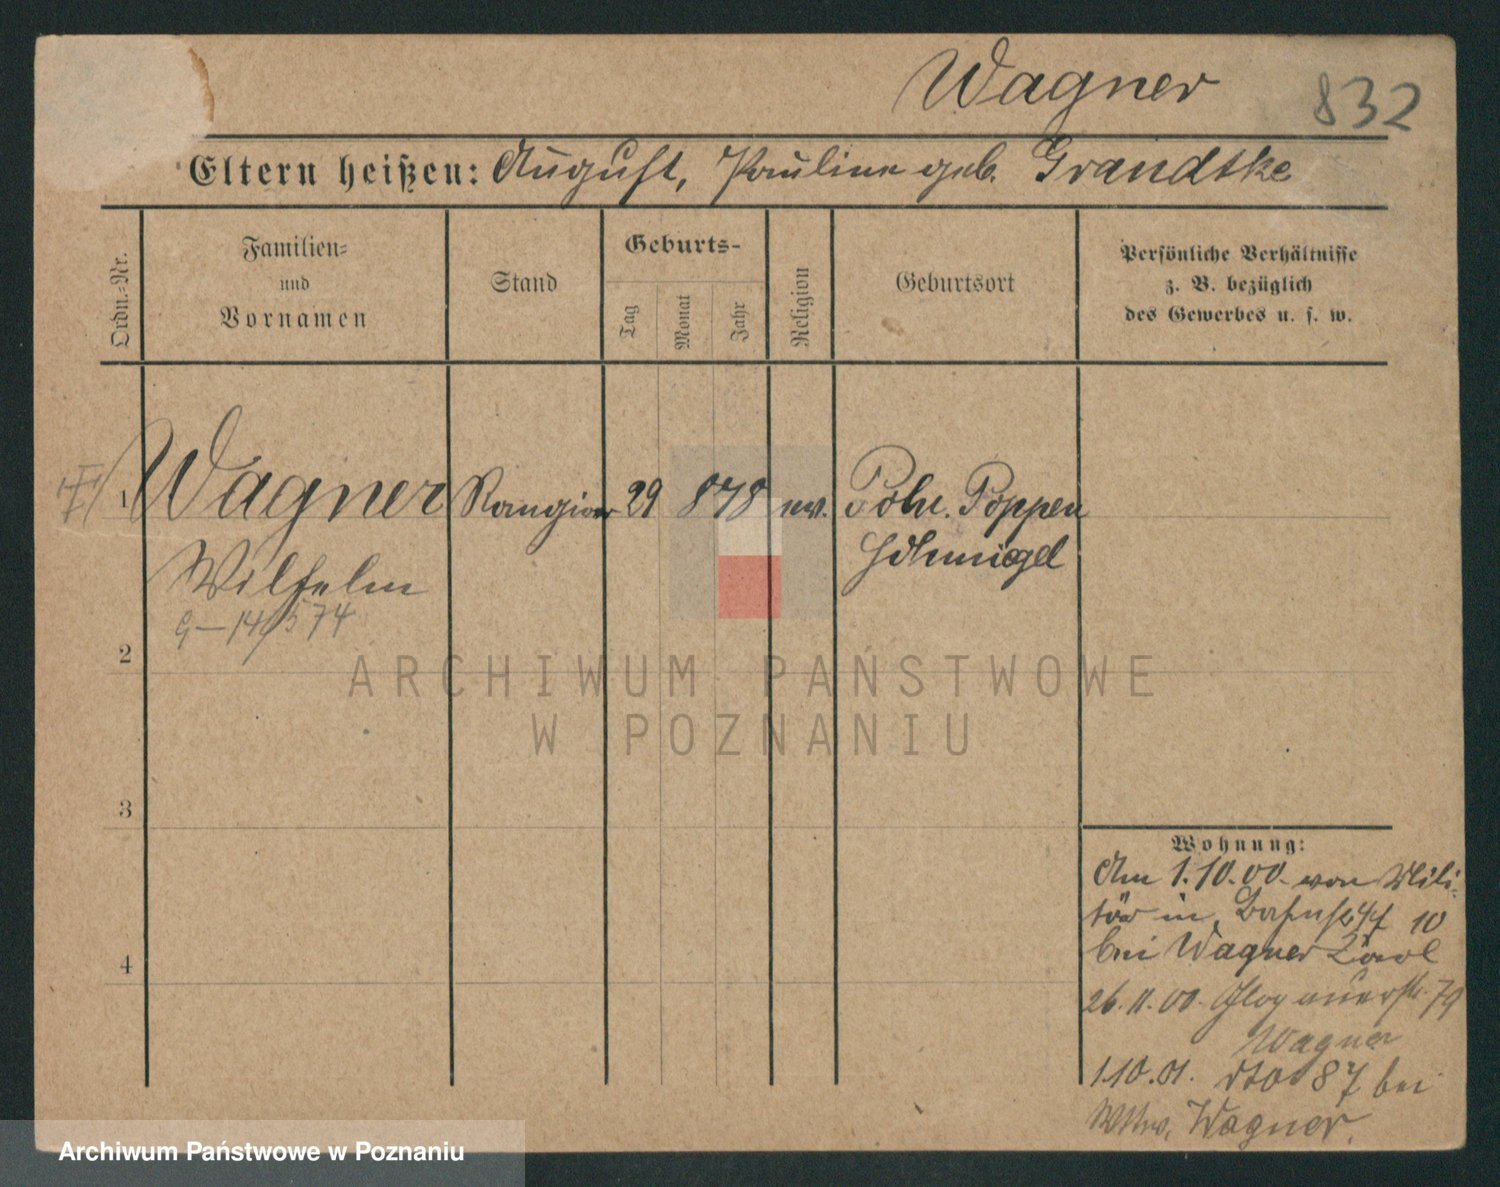 Wagner 832
Eltern heißen: August, Pauline geb. Grandtke
Ordn.-Nr.
Familien-
und
Vornamen
Stand
Geburts-
Tag
Monat
Jahr
Religion
Geburtsort
Persönliche Verhältnisse
z. B. bezüglich
des Gewerbes u. s. w.
1 Wagner Rangierer 29 8 78 ev. Poln. Poppen
Wilhelm Schmiegel
G-14/574
2
3
4
Wohnung:
Am 1.10.00. von Mili-
tär in 10
bei Wagner
26.11.00. Glogauerstr. 79
Wagner
1.10.01. dto 87 bei
Wwe. Wagner.
ARCHIWUM PAŃSTWOWE
W POZNANIU
Archiwum Państwowe w Poznaniu